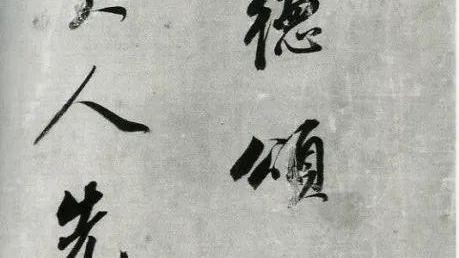 德頌
人先